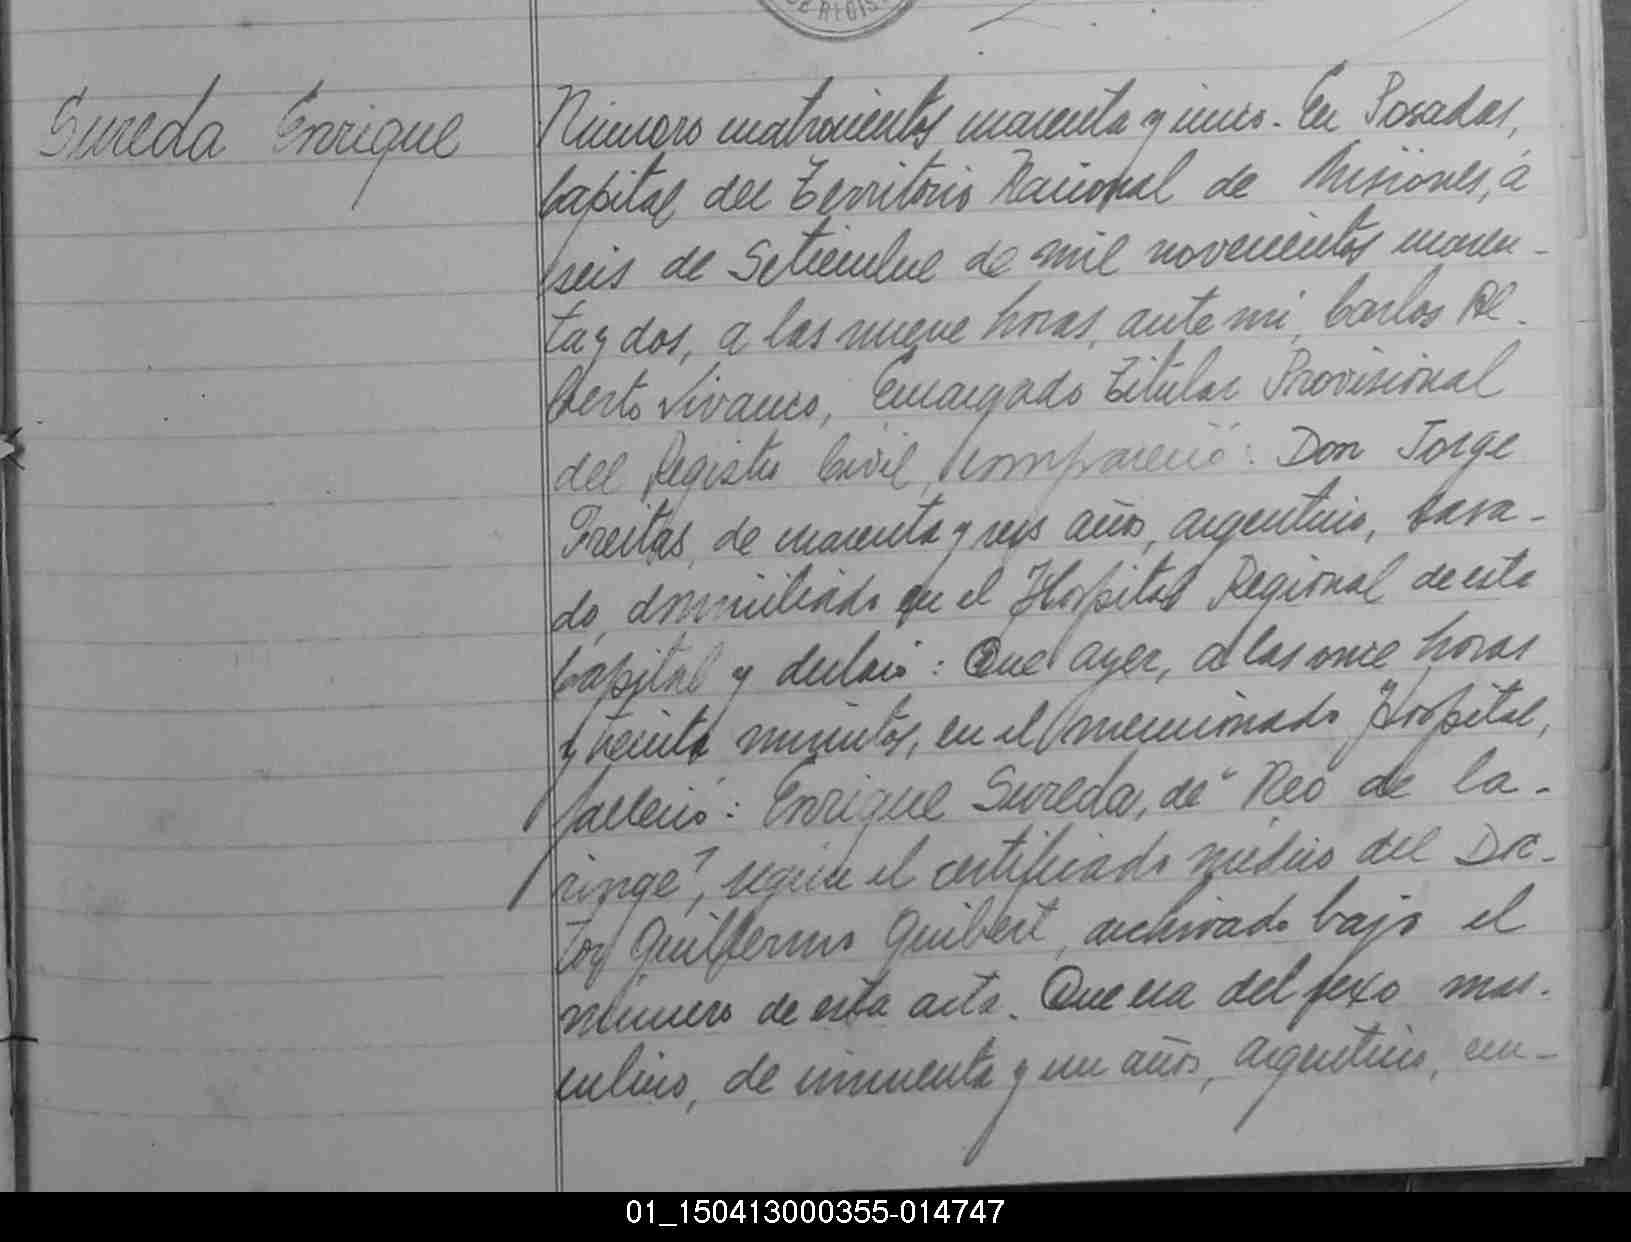 DE REGIS
Sureda Enrique
Número cuatrocientos cuarenta y cinco.- En Posadas,
Capital del Territorio Nacional de Misiones, á
seis de Setiembre de mil novecientos cuaren-
ta y dos, a las nueve horas, ante mi, Carlos Al-
berto Vivanco, Encargado Titular Provisional
del Registro Civil, compareció: Don Jorge
Freitas, de cuarenta y seis años, argentino, casa-
do, domiciliado en el Hospital Regional de esta
Capital y declaró: Que ayer, a las once horas
y treinta minutos, en el mencionado Hospital,
falleció: Enrique Sureda, de "Neo de la-
ringe", según el certificado médico del Doc-
tor Guillermo Guibert, archivado bajo el
número de esta acta. Que era del sexo mas-
culino, de cincuenta y un años, argentino,
01_150413000355-014747